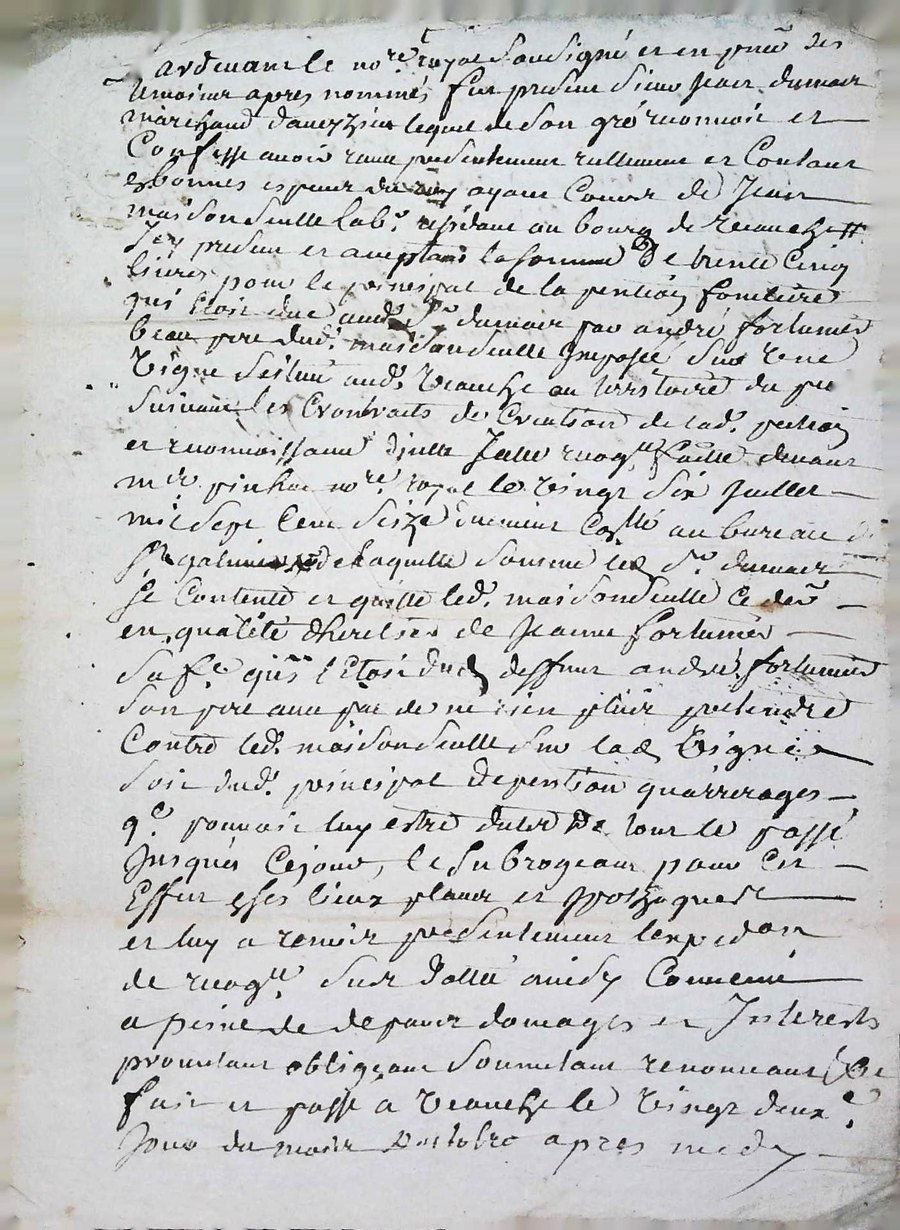 Pardevant le no.re royal Soussigné et en pnce des
temoins apres nommés fut present Sieur Jean dumair
marchand lequel de Son gré reconnoit et
Confesse avoir receu presentement reellement et Contant
es bonnes especes du Roy ayant Cours de Jean
maisonseulle lab.r residant au bourg de
Icy present et acceptant la Somme De trente Cinq
livres pour le principal de la pention fonciere
qui Etoit due aud. S.r dumair par andré fortunier
beau pere dud. maisonseulle Imposée Sur Une
Vigne Scituée aud. veauche au territoire du
Suivant les Contracts de Creation de lad. pention
et reconnoissance d'icelle Jalle recog.ce faitte devant
m.e pinhac no.re royal le Vingt Six Juillet
mil Sept Cent Seize duement Co.llé au bureau de
S.t galmier de laquelle Somme led. S.r dumair
Se Contente et quitte led. maisonseulle Ce
en qualité d'heritier de Jeanne fortunier
Sa f.e qui l'Etoit dud. deffunt andré fortunier
Son pere avec pac de ne rien plus pretendre
Contre led. maisonseulle Sur lad. Vigne
Soit dud. principal De pention qu'arrerages
q.e pouvoit luy estre dubs De tout le passé
Jusques Cejour, le Subrogeant pour Cet
Effet es ses lieux place et hypotheques
et luy a remis presentement l'expedon
de recog.ce Sus datté ainsy Convenu
a peine de depens domages et Interests
promettant obligeant Soumetant renonceant &
fait et passé a veauche le Vingt deux.e
Jour du mois D'octobre apres midy